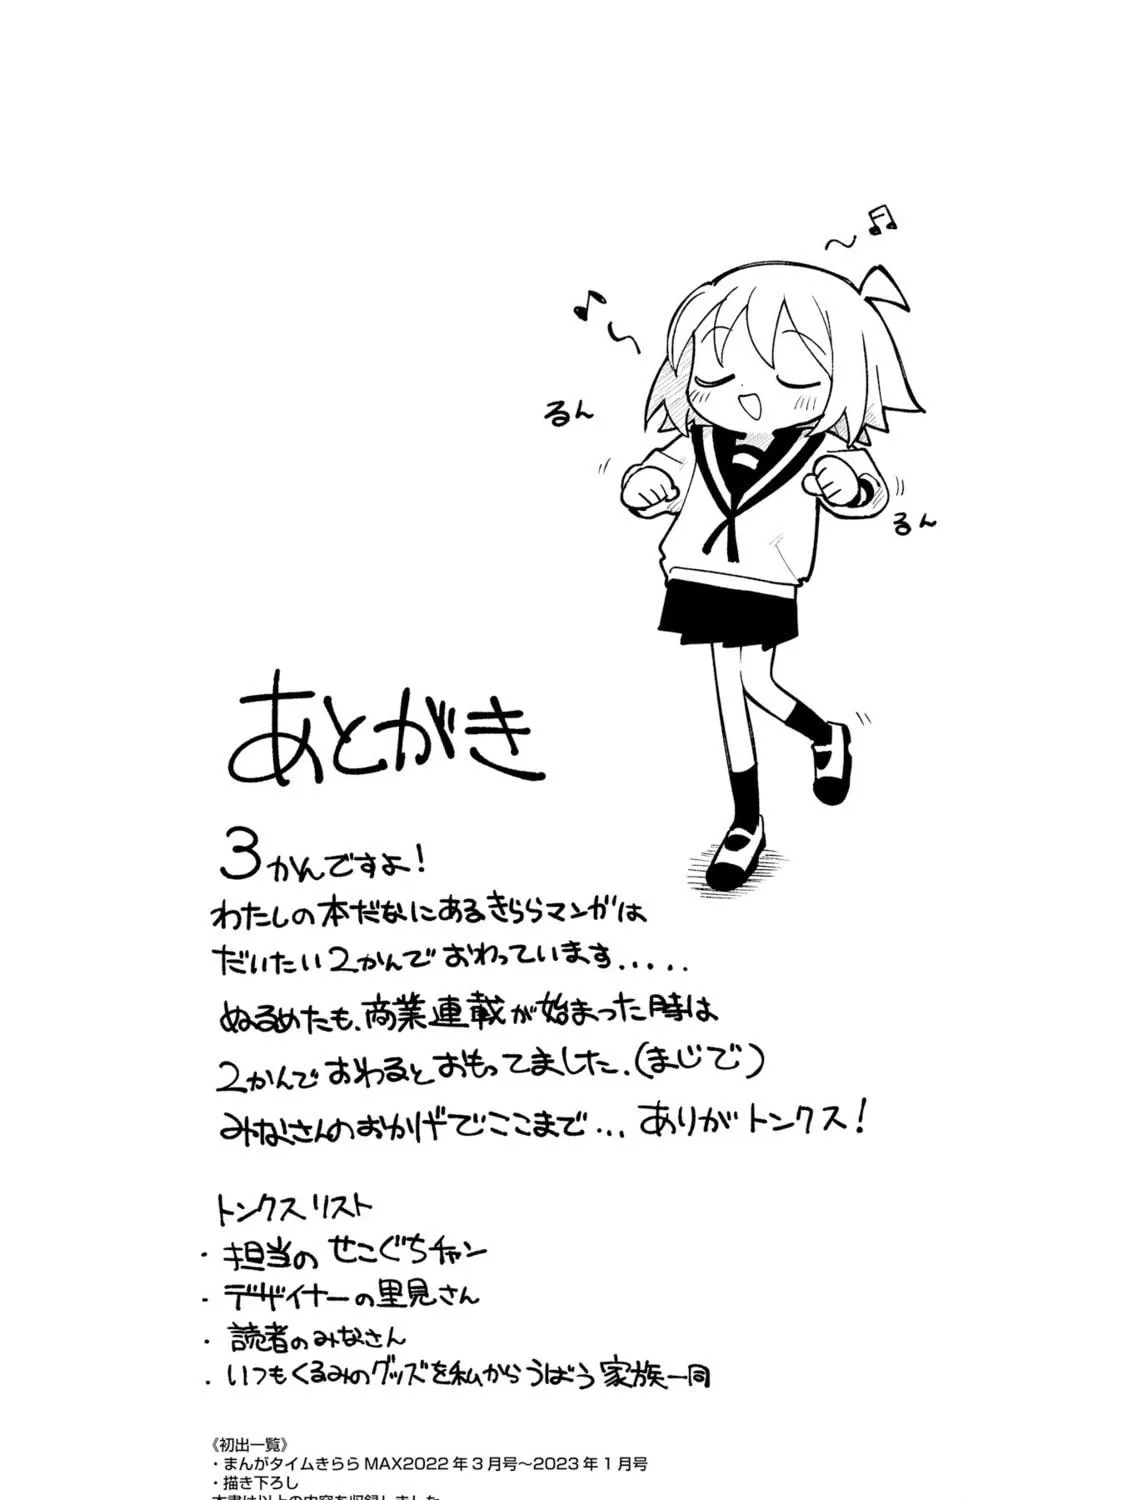 るん
るん
あとがき
3かんですよ!
わたしの本だなにあるきららマンガは
だいたい2かんでおわっています.....
ぬるめたも、商業連載が始まった時は
2かんでおわるとおもってました.(まじで)
みなさんのおかげでここまで... ありがトンクス!
トンクスリスト
・担当の せこぐちチャン
・デザイナーの里見さん
・読者のみなさん
・いつもくるみのグッズを私からうばう家族一同
《初出一覧》
・まんがタイムきららMAX2022年3月号〜2023年1月号
・描き下ろし
本書は以上の内容を収録しました